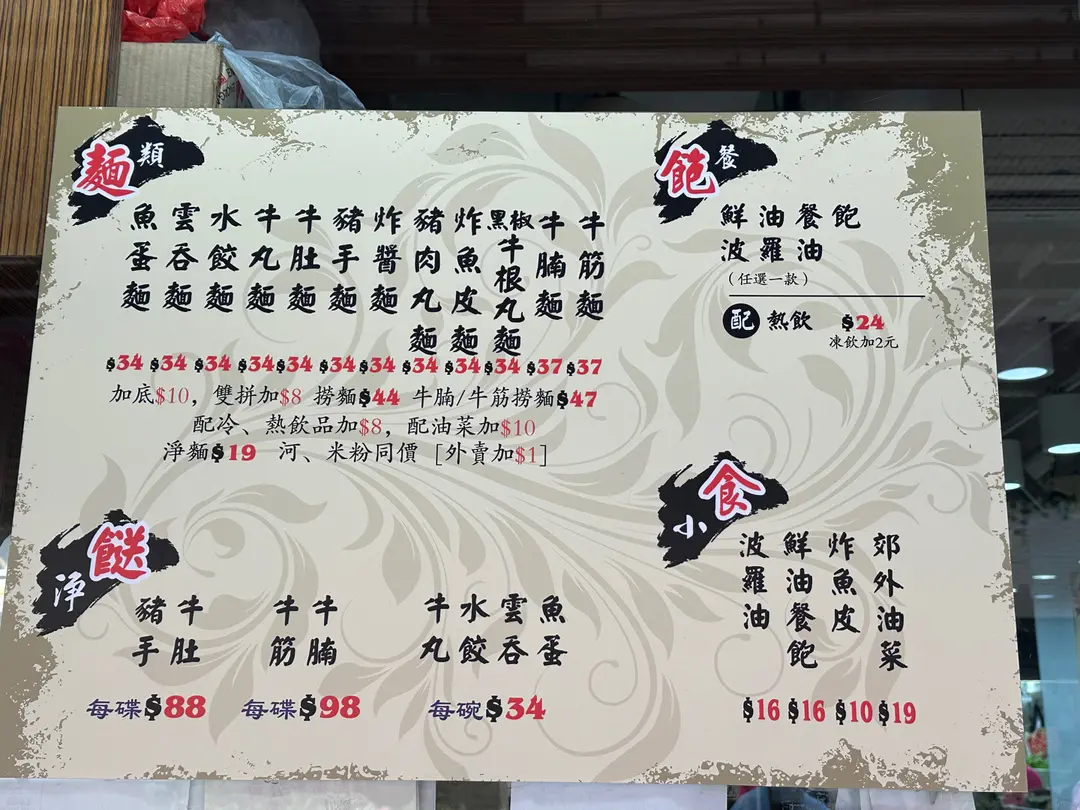 麵類
魚蛋麵 $34
雲吞麵 $34
水餃麵 $34
牛丸麵 $34
牛肚麵 $34
豬手麵 $34
炸醬麵 $34
豬肉丸麵 $34
炸魚皮麵 $34
黑椒牛根丸麵 $34
牛腩麵 $37
牛筋麵 $37
加底$10，雙拼加$8 撈麵$44 牛腩/牛筋撈麵$47
配冷、熱飲品加$8，配油菜加$10
淨麵$19 河、米粉同價 [外賣加$1]
飽餐
鮮油餐飽
波羅油
(任選一款)
配 熱飲 $24
凍飲加2元
淨餸
豬手 牛肚
每碟$88
牛筋 牛腩
每碟$98
牛丸 水餃 雲吞 魚蛋
每碗$34
小食
波羅油 $16
鮮油餐飽 $16
炸魚皮 $10
郊外油菜 $19